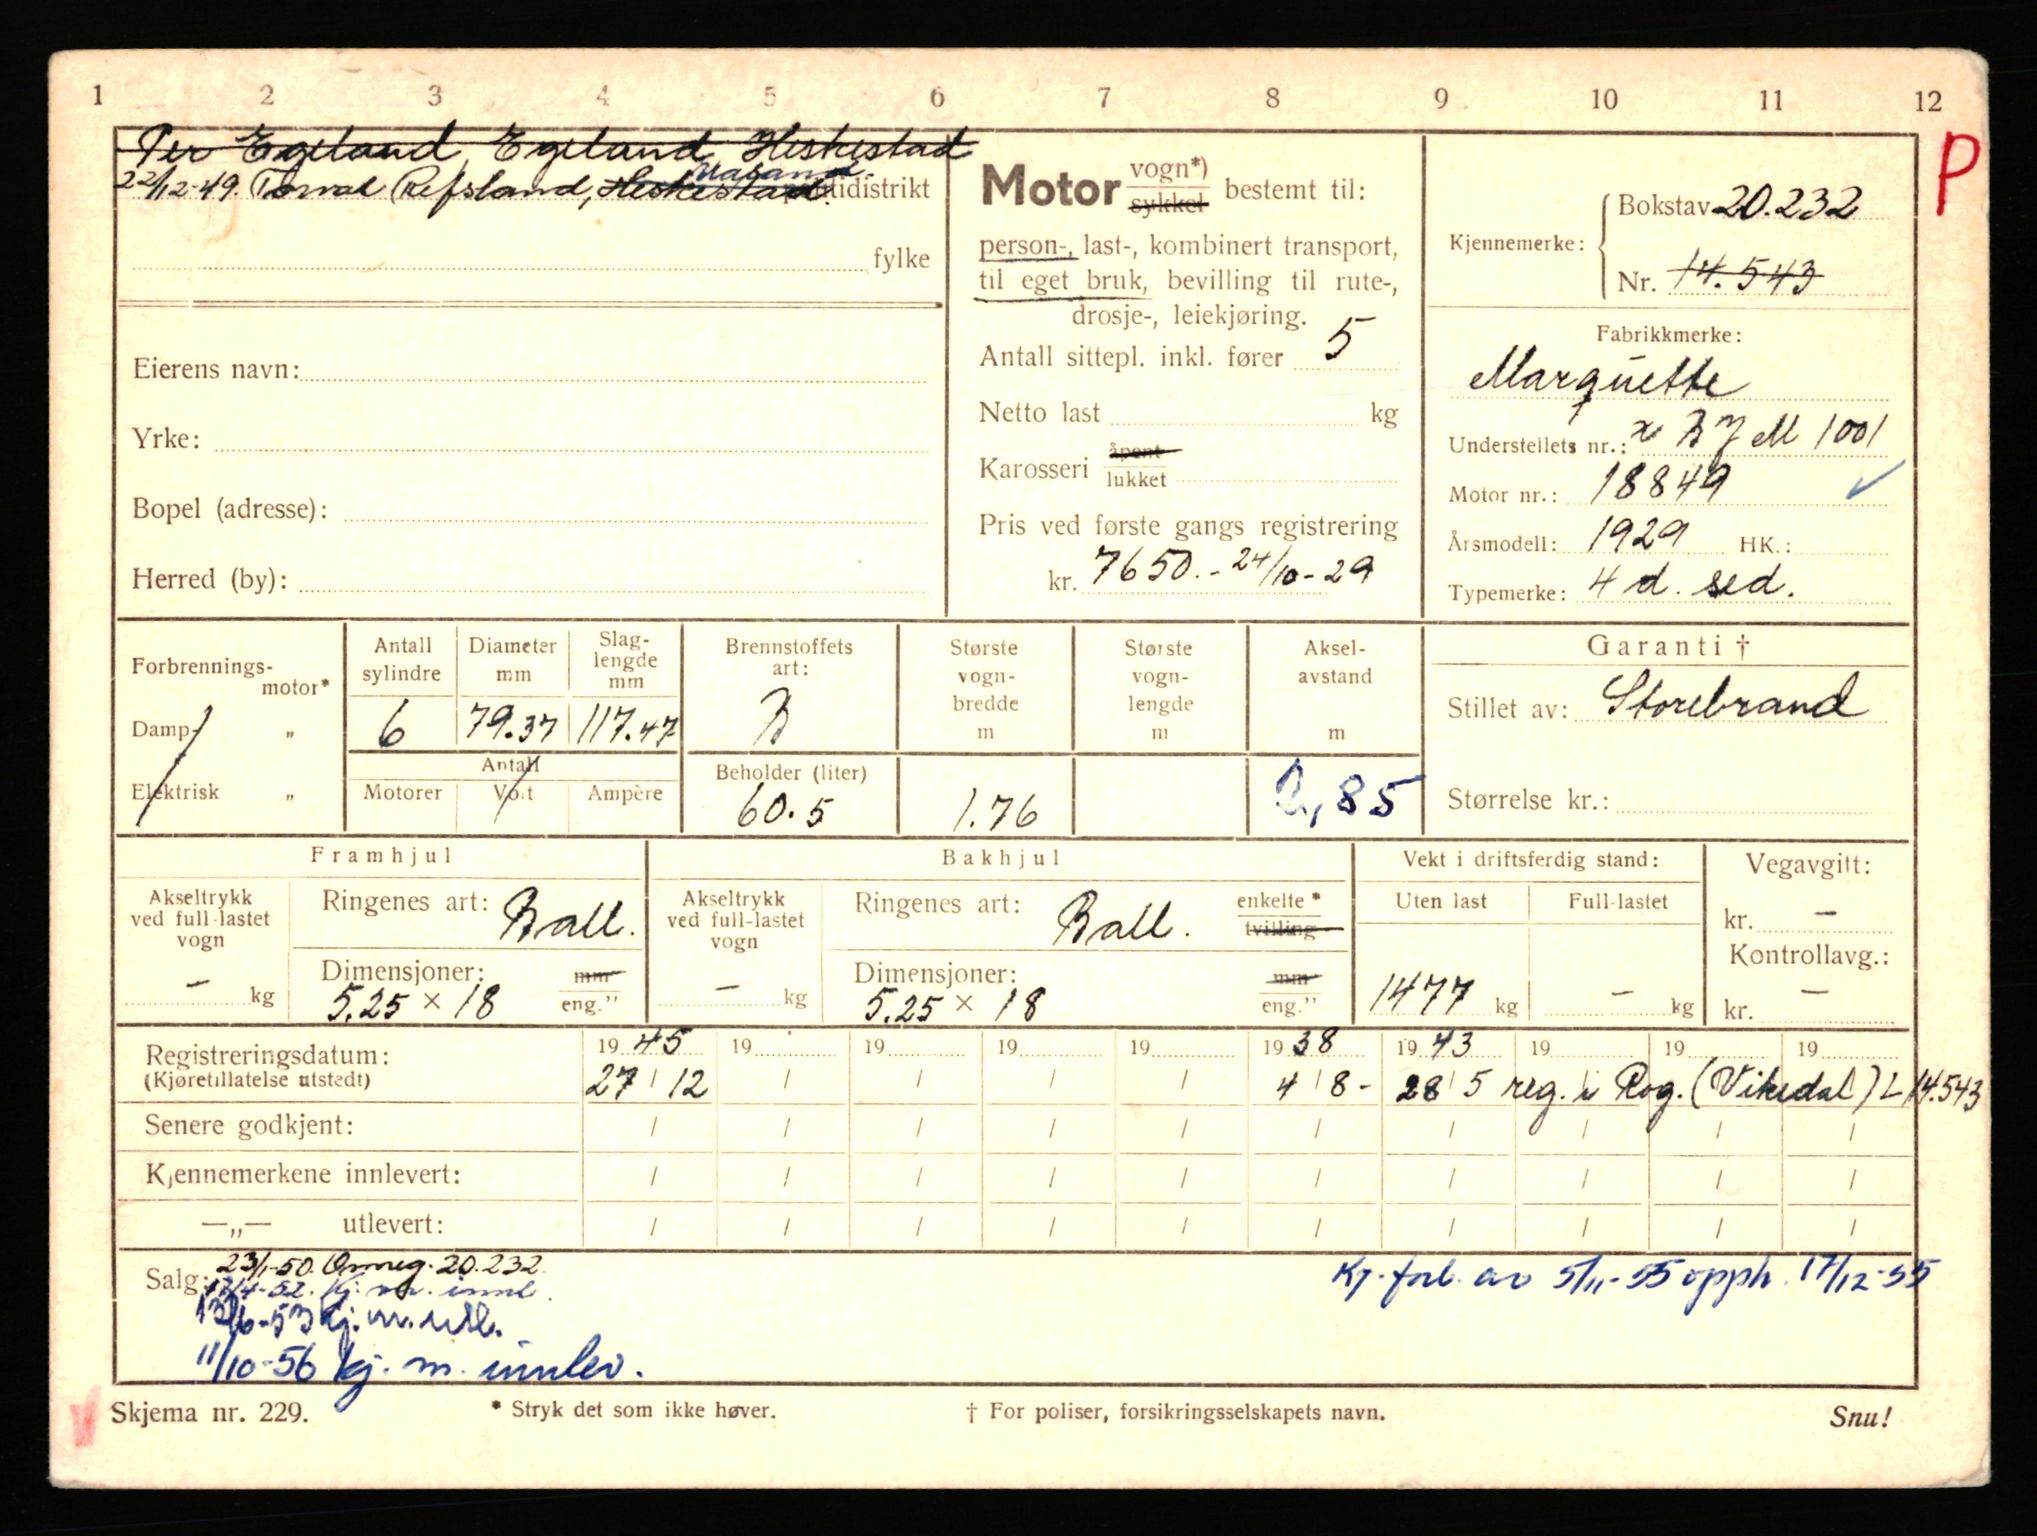 1 2 3 4 5 6 7 8 9 10 11 12
P
Per Egeland, Egeland, Heskestad
22/12-49. Torval Refsland, Heskestad politidistrikt
fylke
Eierens navn:
Yrke:
Bopel (adresse):
Herred (by):
Motor vogn*) sykkel bestemt til:
person-, last-, kombinert transport,
til eget bruk, bevilling til rute-,
drosje-, leiekjøring.
Antall sittepl. inkl. fører 5
Netto last kg
Karosseri åpent lukket
Pris ved første gangs registrering
kr. 7650.- 24/10-29
Kjennemerke: Bokstav 20.232
Nr. 14.543
Fabrikkmerke:
Marquette
Understellets nr.: x B J M 1001
Motor nr.: 18849
Årsmodell: 1929 HK.:
Typemerke: 4 d. sed.
Forbrennings-motor*
Damp- „
Elektrisk „
Antall sylindre 6
Diameter mm 79.37
Slag-lengde mm 117.47
Antall
Motorer Volt Ampère
Brennstoffets art: B
Beholder (liter) 60.5
Største vogn-bredde m 1.76
Største vogn-lengde m
Aksel-avstand m 2,85
Garanti †
Stillet av: Storebrand
Størrelse kr.:
Framhjul
Akseltrykk ved full-lastet vogn – kg
Ringenes art: Ball.
Dimensjoner: mm
5.25 × 18 eng.”
Bakhjul
Akseltrykk ved full-lastet vogn – kg
Ringenes art: Ball. enkelte * tvilling
Dimensjoner: mm
5.25 × 18 eng.”
Vekt i driftsferdig stand:
Uten last Full-lastet
1477 kg – kg
Vegavgitt:
kr. –
Kontrollavg.:
kr. –
Registreringsdatum: 19 45 19 19 19 19 19 38 19 43 19 19 19
(Kjøretillatelse utstedt) 27 / 12 / / / / 4 / 8 - 28 / 5 reg. i Rog. (Vikedal) L 14.543
Senere godkjent: / / / / / / / / / /
Kjennemerkene innlevert: / / / / / / / / / /
—„— utlevert: / / / / / / / / / /
Salg: 23/1-50. Omreg. 20.232.
17/4-52. Kj. m. innl.
13/6-53 Kj. m. utl.
11/10-56 kj. m. innlev.
Kj. forb. av 5/11-55 opph. 17/12-55
Skjema nr. 229.
* Stryk det som ikke høver.
† For poliser, forsikringsselskapets navn.
Snu!